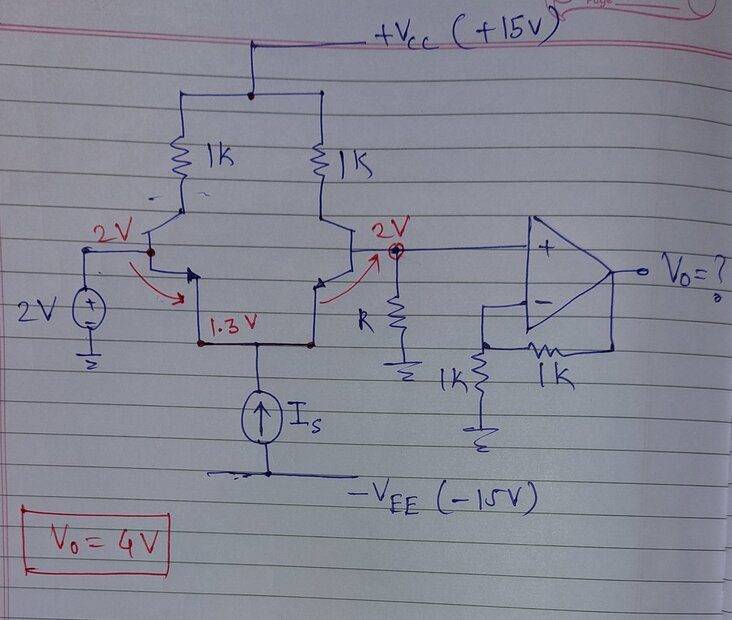 Page
+VCC (+15V)
1K
1K
2V
2V
+
V0 = ?
2V
+
-
-
1.3V
R
1K
1K
IS
-VEE (-15V)
V0 = 4V